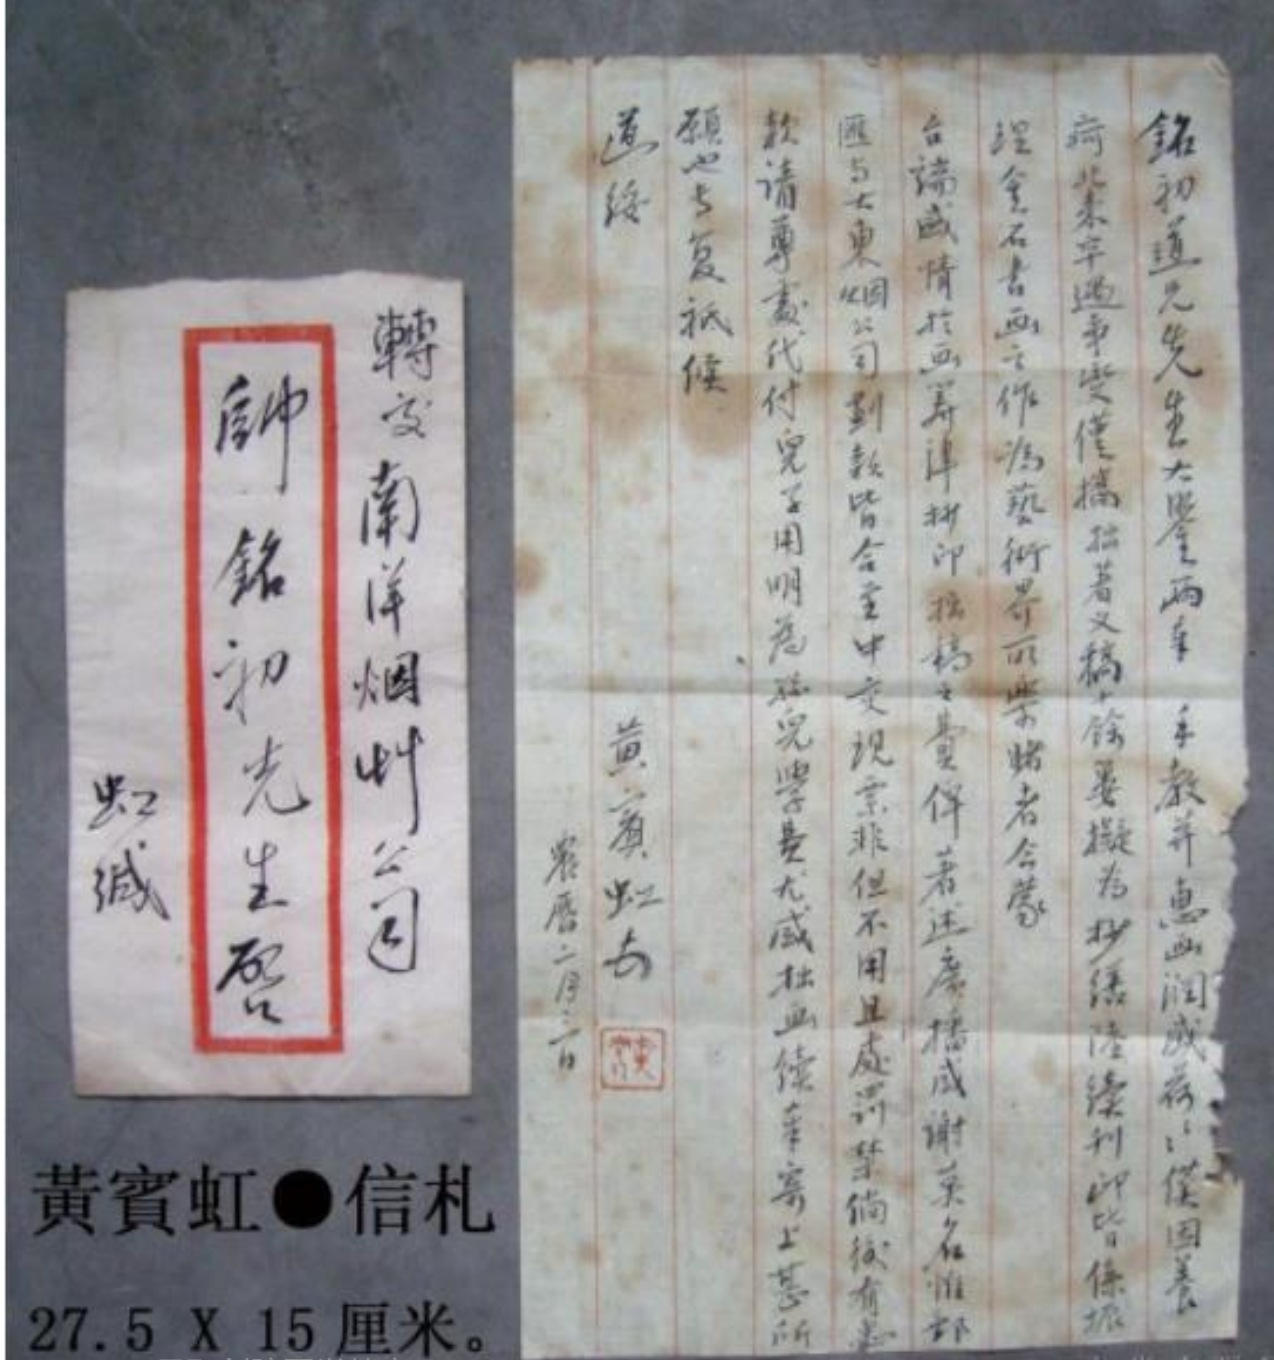 銘初道兄先生大鑒兩奉 手教并惠画潤感荷〻僕因養
疴北來罕過事變僅擕拙著文稿十餘萬擬为抄繕陸續刊印皆係
金石書画之作为藝術界所樂睹者今蒙
台端盛情於画筭潤抄印拙稿之費俾著述廣播感謝莫名惟郵
匯与大東烟公司劃款皆合至中交現票非但不用且處罰禁倘後有惠
款請尊處代付兒子用明為孫兒學費尤感拙画續奉寄上甚所
願也专复祇候
道綏
黄賓虹
農曆二月二日
轉交南洋烟艸公司
帥銘初先生啓
虹缄
黃賓虹●信札
27.5 X 15厘米。